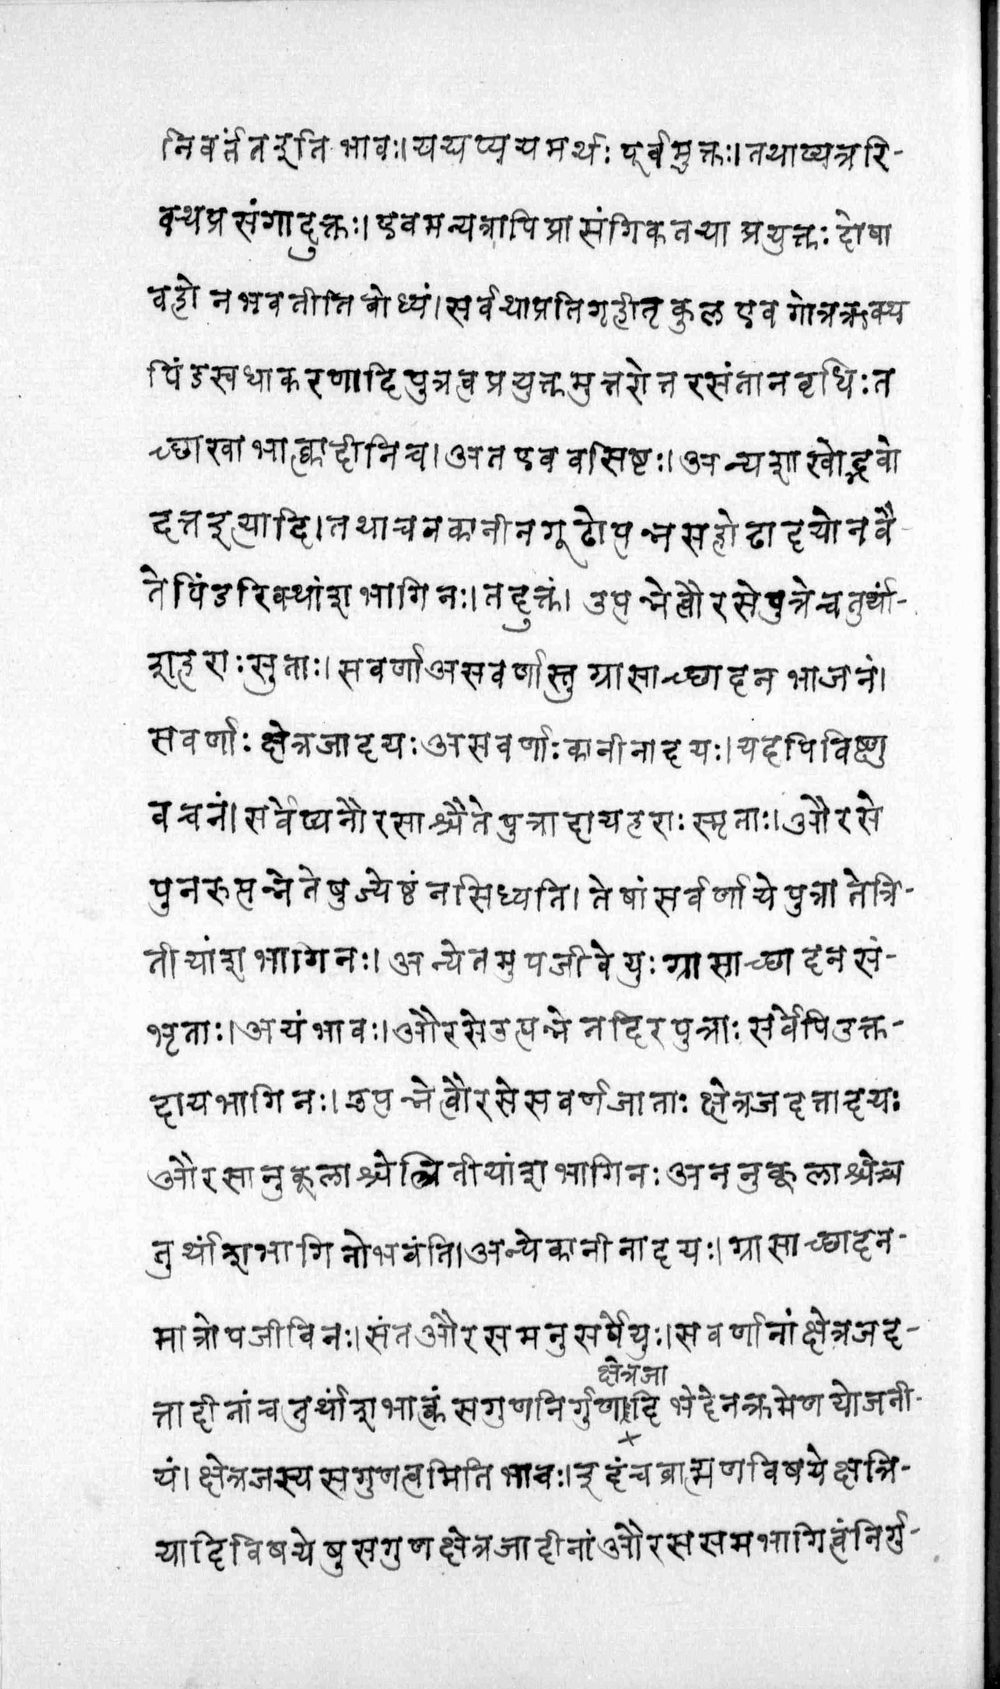 निवर्त्तत इति भावः। यद्यप्ययमर्थः पूर्वमुक्तः। तथाप्यत्र रि-
क्थप्रसंगादुक्तः। एवमन्यत्रापि प्रासंगिकतया प्रयुक्तः दोषा
वहो न भवतीति बोध्यं। सर्वथा प्रतिगृहीतृकुल एव गोत्रऋक्थ
पिंडस्वधाकरणादि पुत्रत्वप्रयुक्तमुत्तरोत्तरसंतानवृधिः त
च्छाखाभाक्त्वादीनि च। अत एव वसिष्टः। अन्यशाखोद्भवो
दत्त इत्यादि। तथा च न कानीनगूढोत्पन्नसहोढादयो न वै
ते पिंडरिक्थांशभागिनः। तदुक्तं। उत्पन्ने त्वौरसे पुत्रे चतुर्थां-
शहराः सुताः। सवर्णा असवर्णास्तु ग्रासाच्छादनभाजनं।
सवर्णाः क्षेत्रजादयः असवर्णाः कानीनादयः। यदपि विष्णु
वचनं। सर्वेप्यनौरसाश्चैते पुत्रा दायहराः स्मृताः। औरसे
पुनरुत्पन्ने तेषु ज्येष्ठं न सिध्यति। तेषां सर्वर्णा ये पुत्रा ते त्रि-
तीयांशभागिनः। अन्ये तमुपजीवेयुः ग्रासाच्छादनसं-
भृताः। अयं भावः। औरसे उत्पन्ने नदिरपुत्राः सर्वेपि उक्त-
दायभागिनः। उत्पन्ने त्वौरसे सवर्णजाताः क्षेत्रजदत्तादयः
औरसानुकूलाश्चेत्त्रितीयांशभागिनः अननुकूलाश्चेच्च
तुर्थांशभागिनो भवंति। अन्ये कानीनादयः। ग्रासाच्छादन-
मात्रोपजीविनः। संत औरसमनुसर्पेयुः। सवर्णानां क्षेत्रजद-
क्षेत्रजा
त्तादीनां चतुर्थांशभाक्त्वं सगुणनिर्गुणादि भेदेन क्रमेण योजनी-
यं। क्षेत्रजस्य सगुणत्वमिति भावः। इदं च ब्राह्मणविषये क्षत्रि-
यादिविषयेषु सगुणक्षेत्रजादीनां औरससमभागित्वं निर्गु-